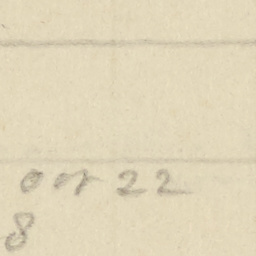 or 22
8